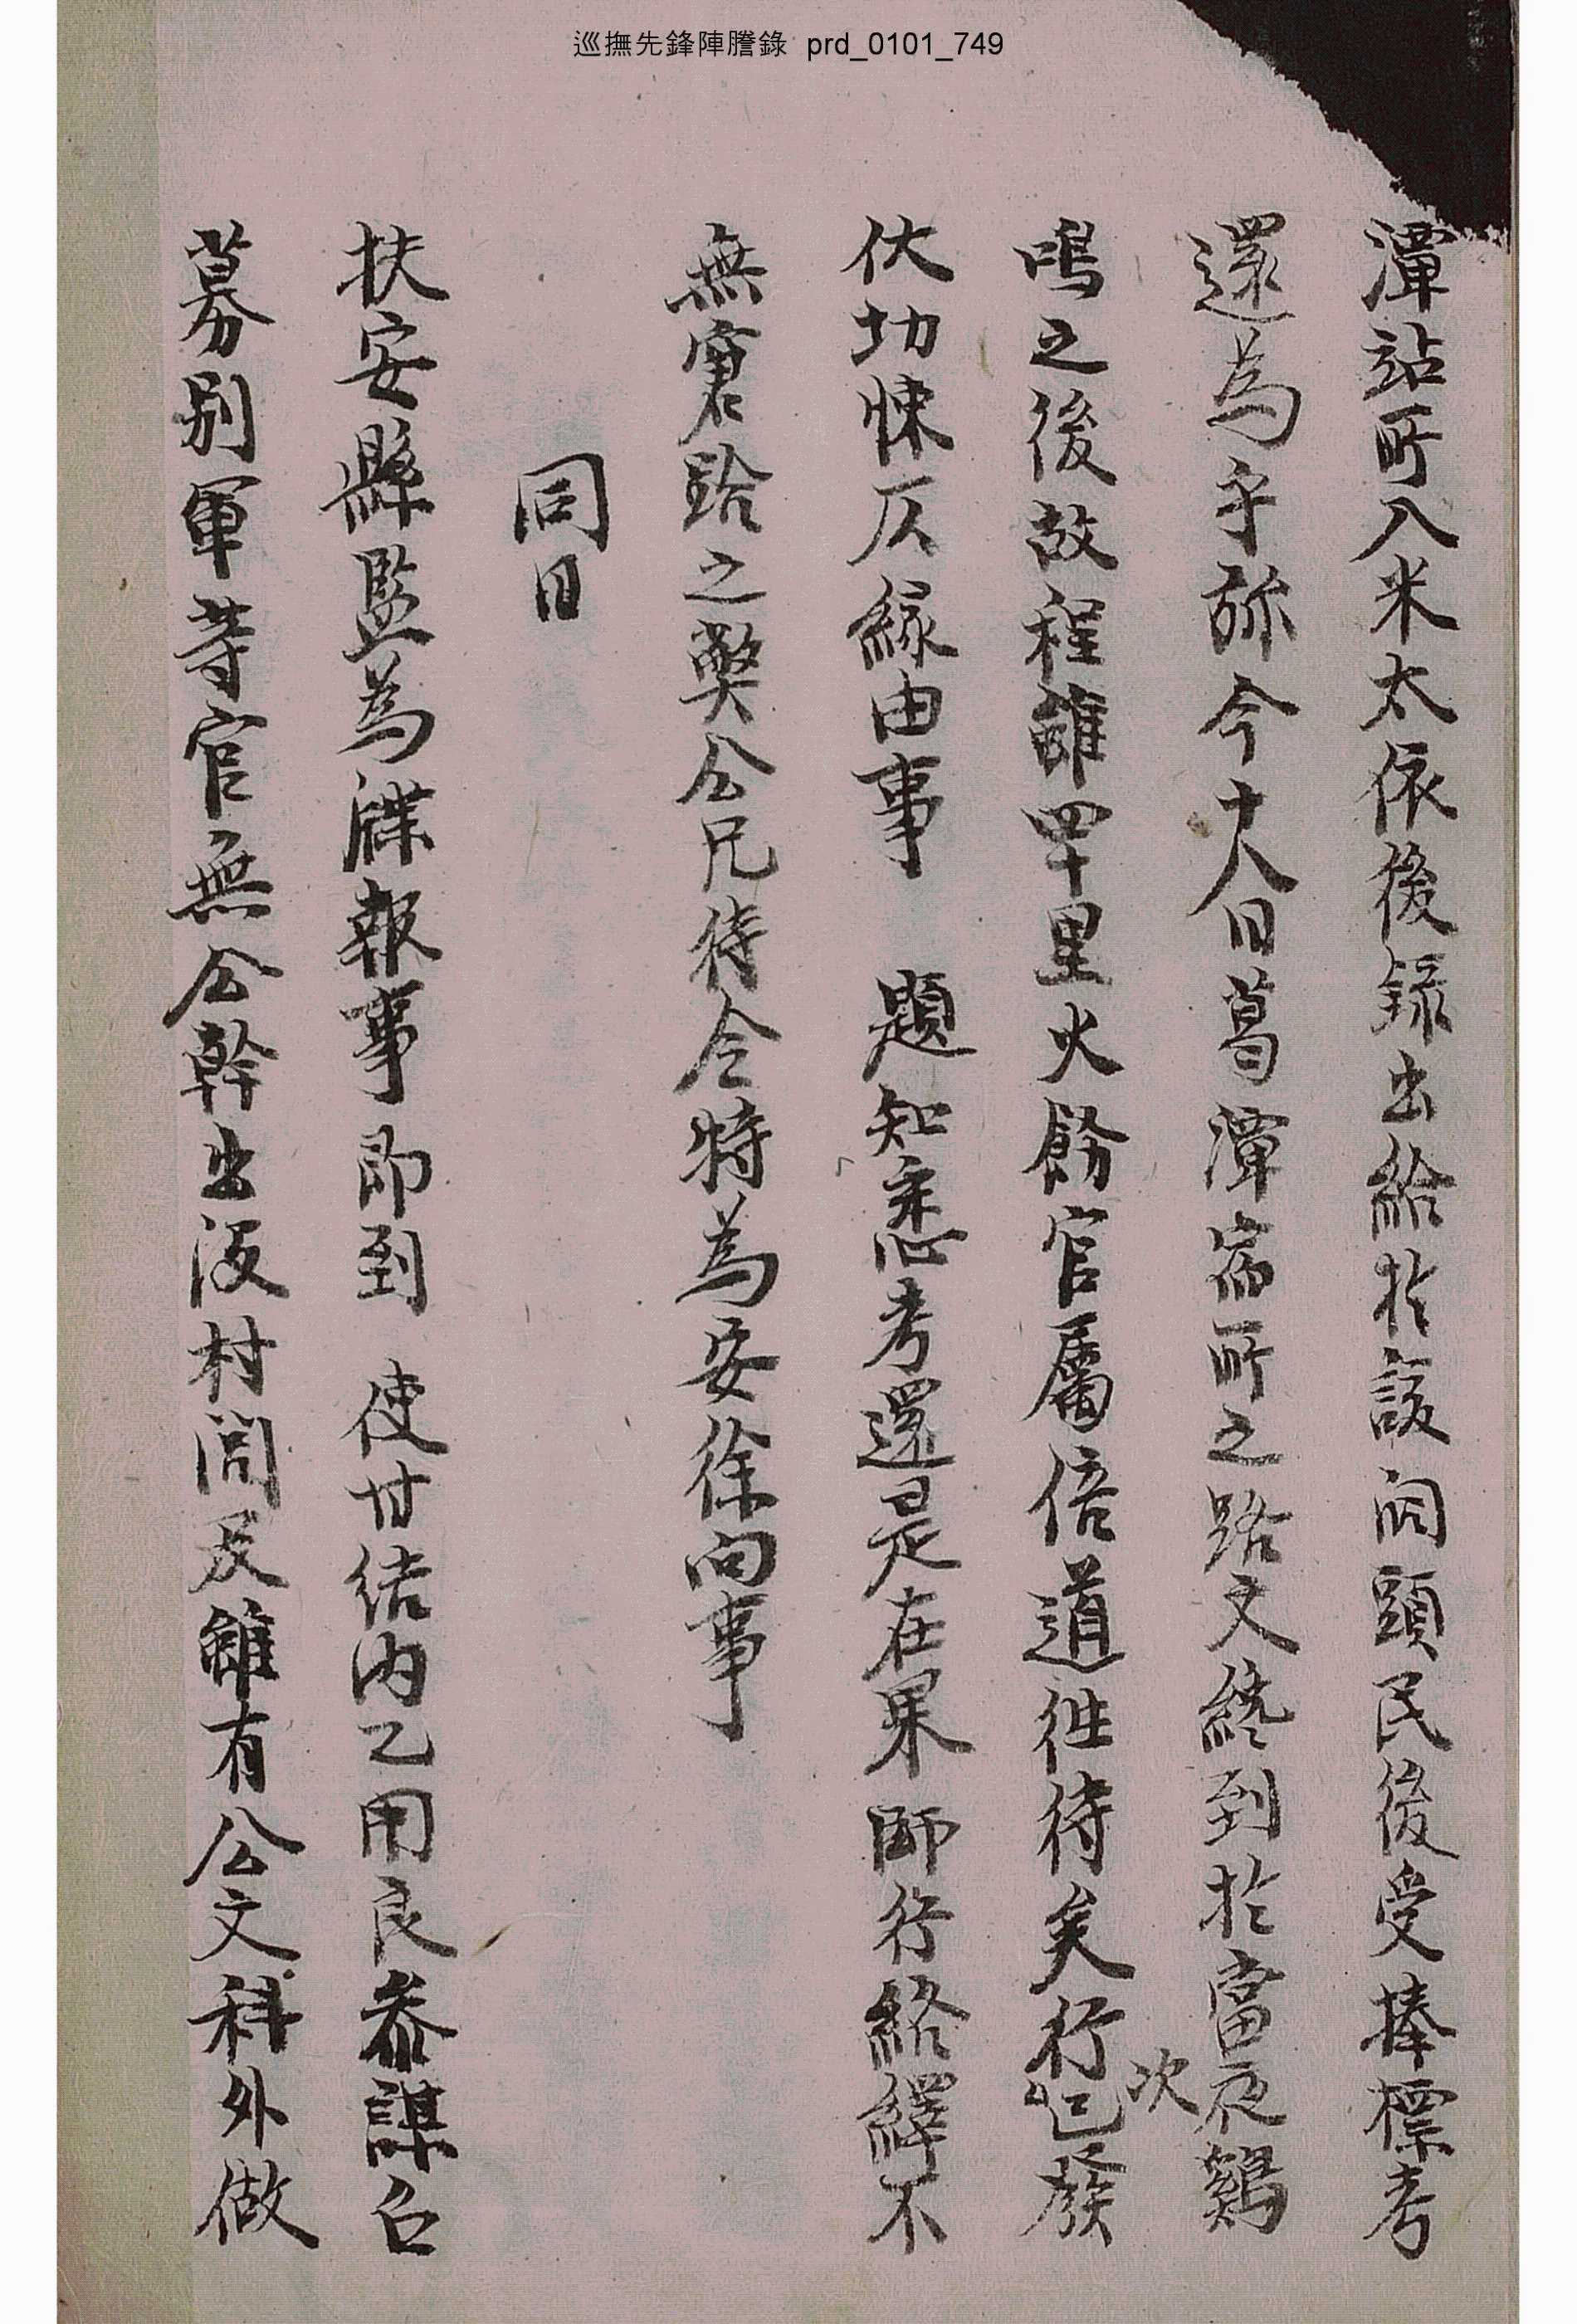 巡撫先鋒陣謄錄 prd_0101_749
潭站所入米太依後錄出給於該洞頭民後受捧標考
還爲乎旀今十八日葛潭宿所之路文終到於當夜鷄
鳴之後故程雖四十里火飭官屬倍道往待矣行次已發
伏切悚仄緣由事 題知悉考還是在果師行絡繹不
無窘跲之弊公兄待令特爲安徐向事
同日
扶安縣監爲牒報事卽到 使甘結內乙用良參謀召
募別軍等官無公幹出沒村閭及雖有公文科外做